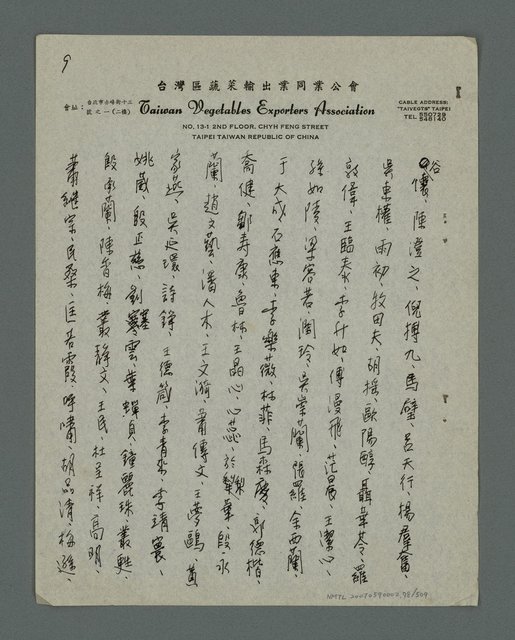 9
台灣區蔬菜輸出業同業公會
會址：台北市赤峰街十三號之一(二樓)
Taiwan Vegetables Exporters Association
NO. 13-1 2ND FLOOR, CHYH FENG STREET
TAIPEI TAIWAN REPUBLIC OF CHINA
CABLE ADDRESS:
"TAIVEGTS" TAIPEI
TEL 550729
谷懷、陳澄之、倪搏九、馬璧、呂天行、楊羣奮、
吳東權、雨初、牧田夫、胡搖、歐陽醇、聶華苓、羅
敦偉、王臨泰、李升如、傅漫飛、茫茜、王潔心、
孫如陵、梁容若、潤玲、吳崇蘭、張羅、余西蘭、
于大成、石應東、李樂薇、林菲、馬森慶、郭德楷、
喬健、鄒壽康、魯林、王晶心、心蕊、於梨華、段永
蘭、趙文藝、潘人木、王文漪、蕭傳文、王夢鷗、黃
家燕、吳延環、詩鋒、王德箴、李青來、李靖寰、
姚葳、殷正慈、劉騫雲、葉蟬貞、鐘麗珠、叢甦、
段承蘭、陳香梅、叢靜文、王民、杜呈祥、高明、
蕭維宗、民葵、匡若霞、呼嘯、胡品清、梅遜
NMTL 20070590002,78/509